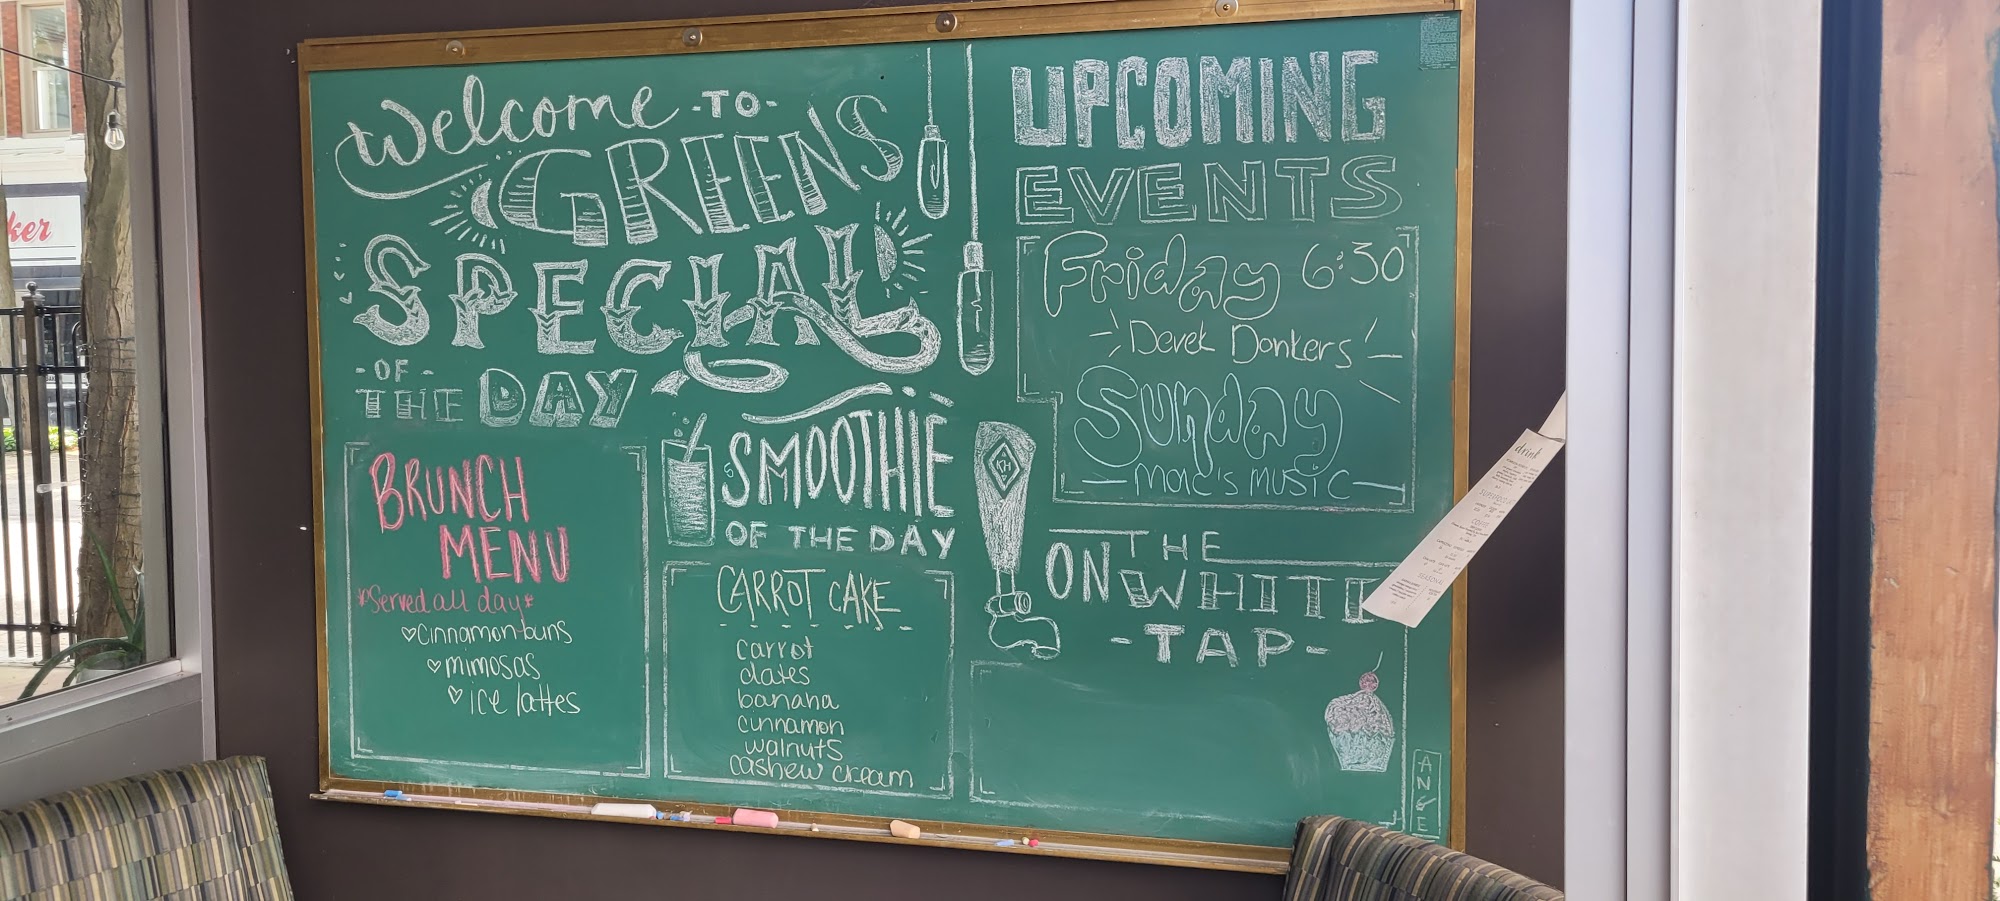 Welcome -TO-
GREENS
SPECIAL
-OF-
THE DAY
BRUNCH
MENU
*Served all day*
♡Cinnamon buns
♡mimosas
♡ice lattes
SMOOTHIE
OF THE DAY
CARROT CAKE
carrot
dates
banana
cinnamon
walnuts
cashew cream
UPCOMING
EVENTS
Friday 6:30
Derek Donkers
Sunday
-Marc's music-
ON THE
WHITE
-TAP-
KH
ANGE
drink
ker